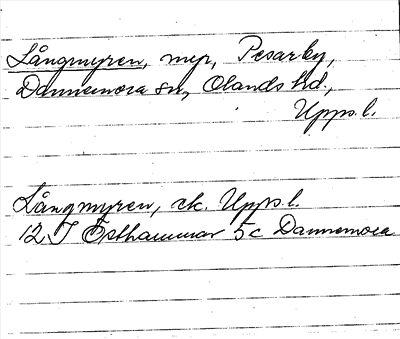 Långmyren, myr, Pesarby,
Dannemora sn, Olands hd.,
Upps.l.
Långmyren, ek. Upps.l.
12 I Östhammar 5c Dannemora